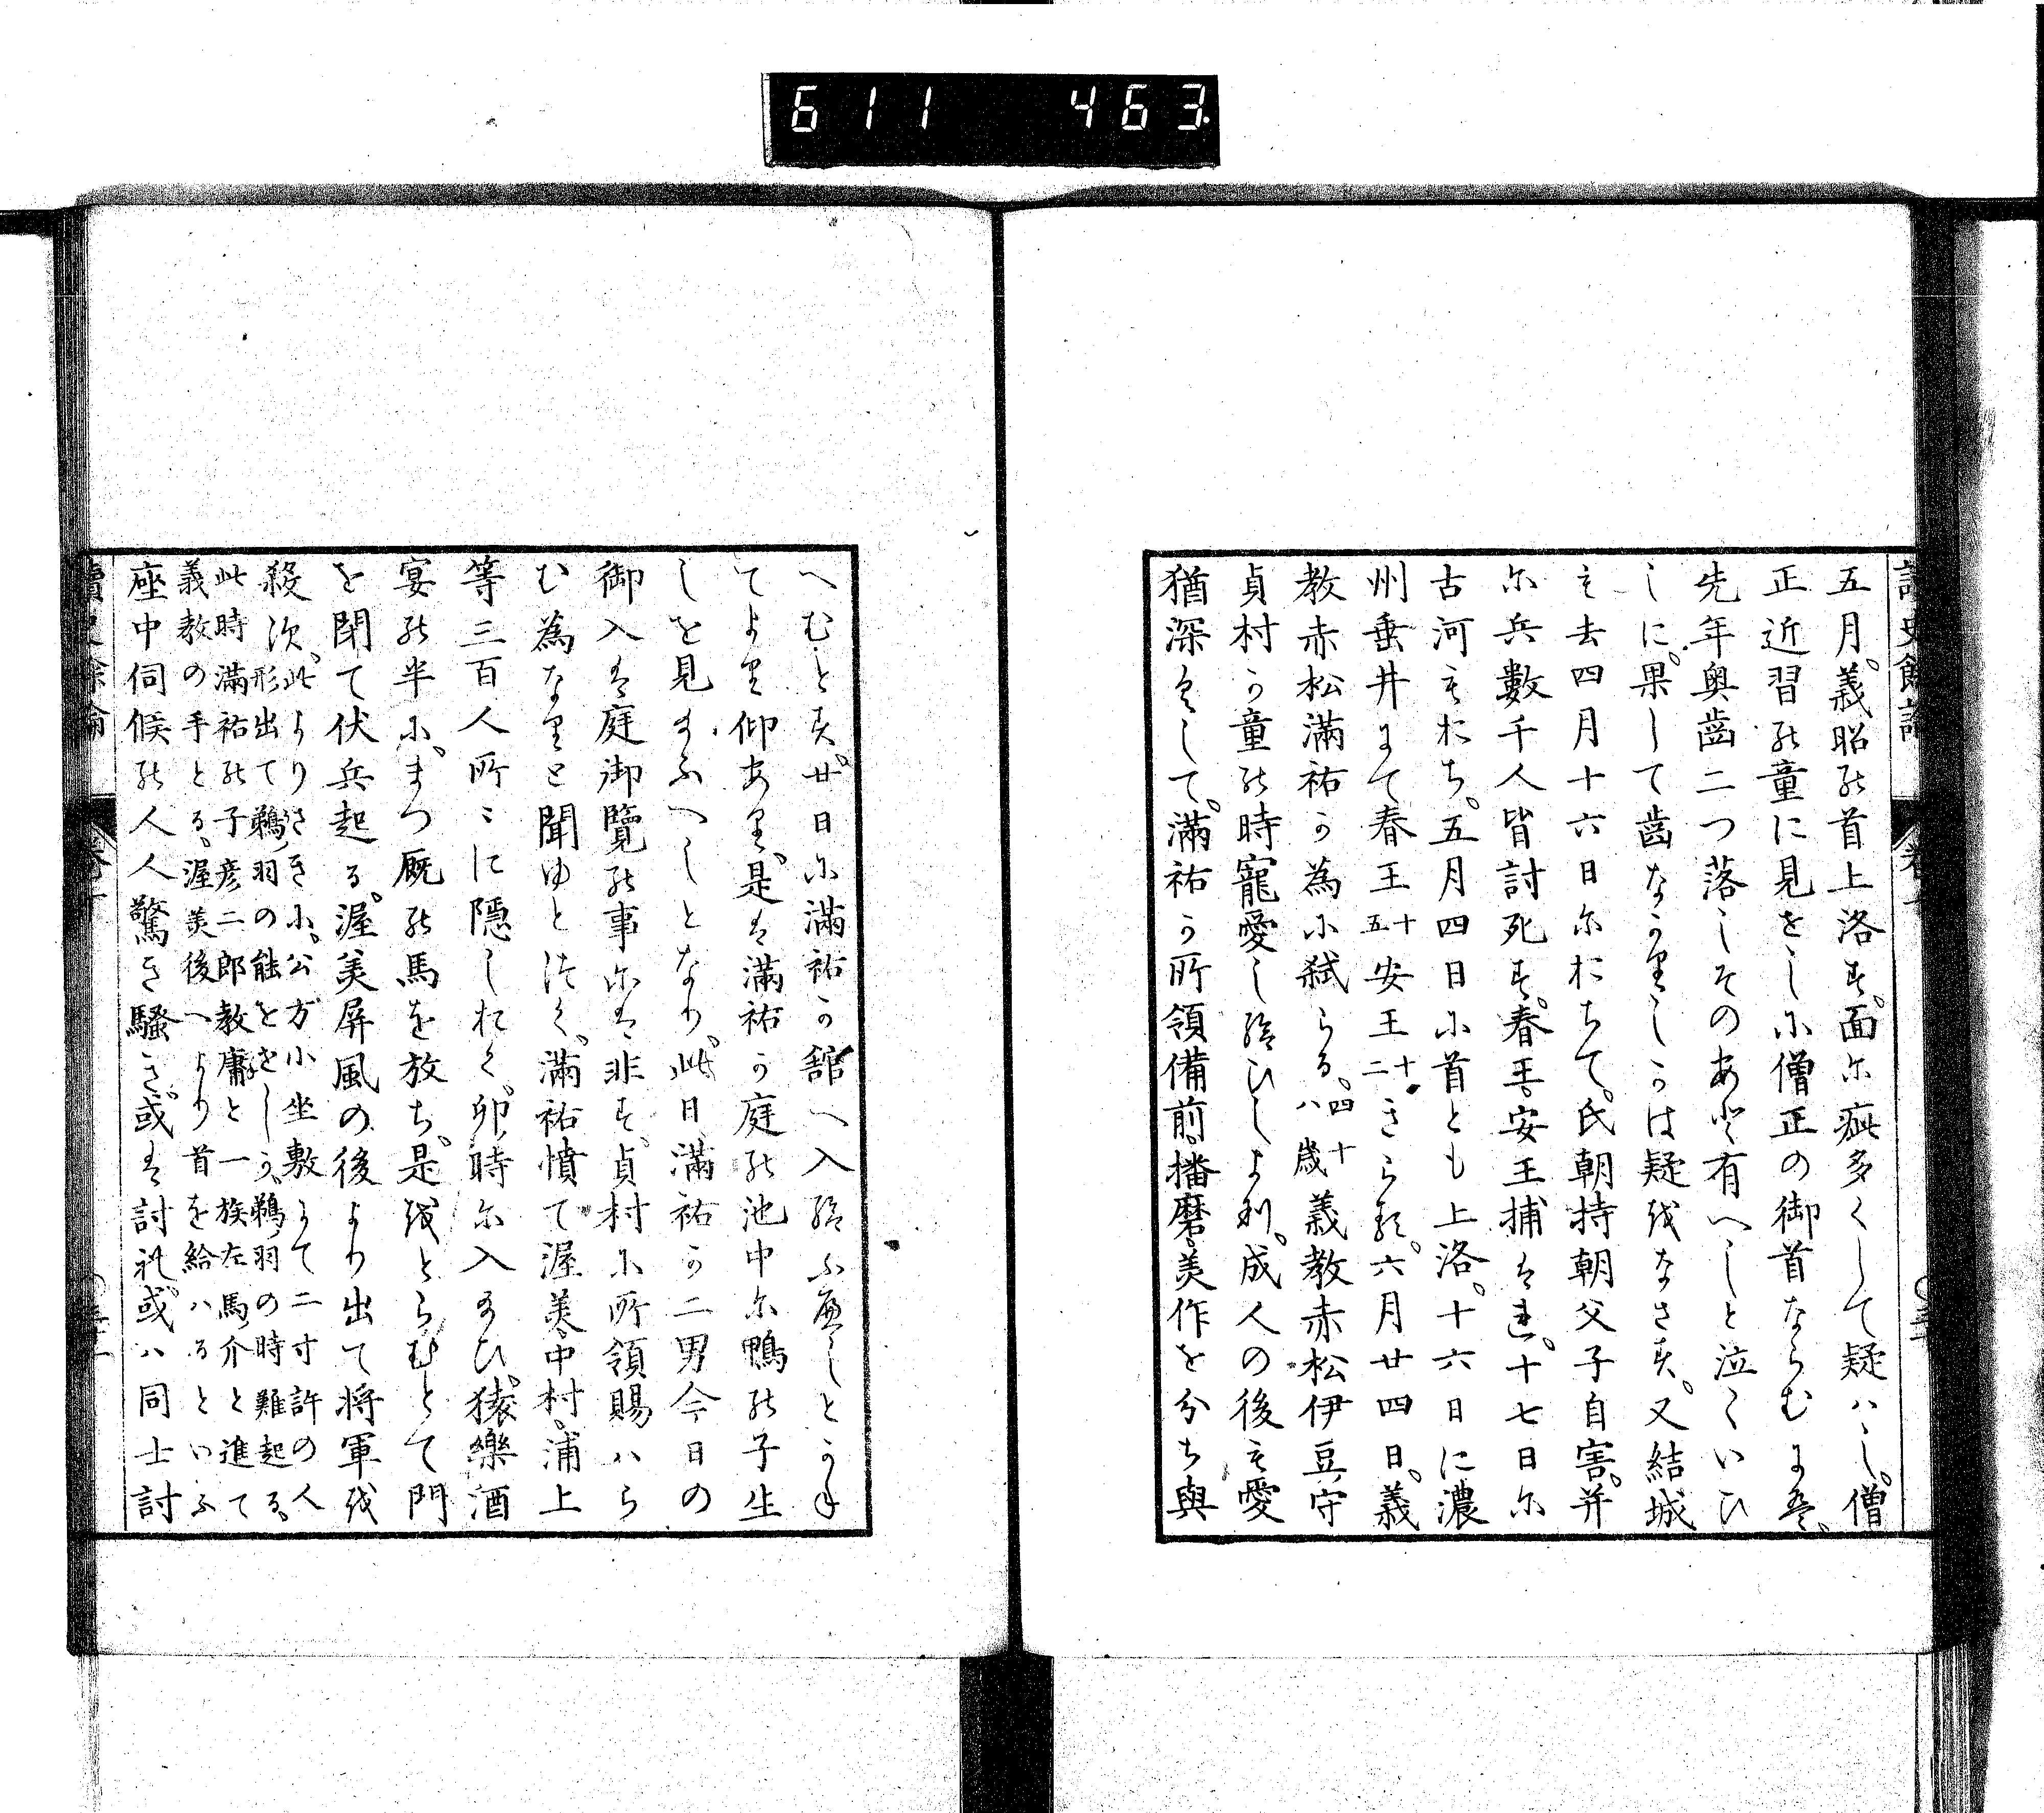 611 463
五月。義昭の首上洛す。面に疵多くして疑ハし。僧
正近習の童に見をしに僧正の御首ならむまゝ、
先年奥齒二つ落しそのあと有へしと泣くいひ
しに。果して齒なかりしかは疑をなさす。又結城
も去四月十六日におちて。氏朝持朝父子自害。并
に兵數千人皆討死す。春王安王捕はれ。十七日に
古河もおち。五月四日に首とも上洛。十六日に濃
州垂井まて春王十五安王十二きらる。六月廿四日。義
教赤松滿祐か為に弑らる。四十八歳義教赤松伊豆守
貞村か童の時寵愛し給ひしより。成人の後も愛
猶深くして。滿祐か所領備前播磨美作を分ち與
へむとす。廿日に滿祐か舘へ入給ふへしとかね
てより仰あり。是は滿祐か庭の池中に鴨の子生
しを見玉ふへしとなり。此日滿祐か二男今日の
御入は庭御覽の事には非す。貞村に所領賜ハら
む為なりと聞ゆとつく。滿祐憤て渥美中村浦上
等三百人所々に隱しおく。卯時に入玉ひ。猿樂酒
宴の半に。まつ厩の馬を放ち。是をとらむとて門
を閉て伏兵起る。渥美屏風の後より出て将軍を
殺次。此よりさきに。公方小坐敷にて二寸許の人
形出て鵜羽の能をさしゝか。鵜羽の時難起る。
此時滿祐の子彦二郎教庸と一族左馬介と進て
義教の手とる。渥美後へより首を給ハるといふ
座中伺候の人人驚き騷き。或は討れ。或ハ同士討
讀史餘論